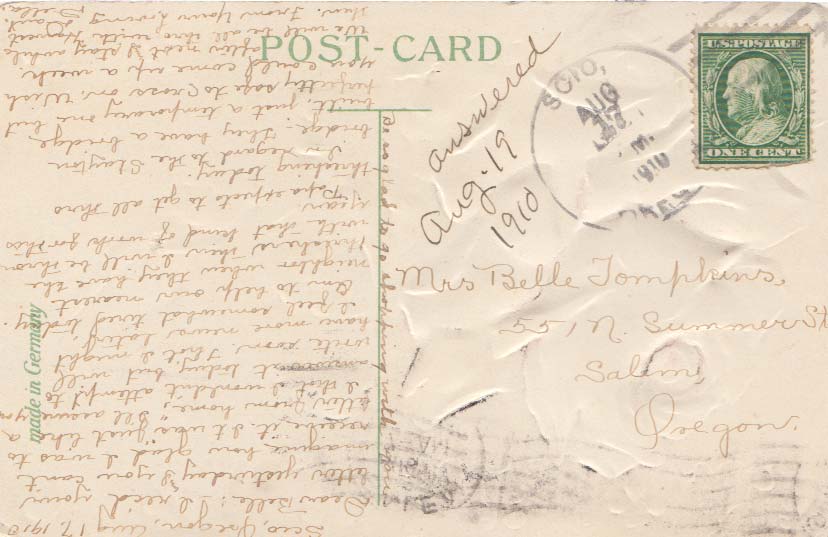 POST-CARD
U.S. POSTAGE
ONE CENT
SCIO,
AUG
M.
1910
answered
Aug. 19
1910
Mrs Belle Tompkins,
551 N. Summer St
Salem,
Oregon.
made in Germany
Scio, Oregon, Aug 17, 1910
Dear Belle:- I rec'd your
letter yesterday & you can't
imagine how glad I was to
receive it. It was "just like a
letter from home," I'll assure you
I that I wouldn't attempt to
answer it today but will
write soon. I that I might
have more news later.
I feel somewhat tired today.
Am to help our nearest
neighbor when they have the
threshers then I will be thron
with that kind of work for this
year
Papa expects to get all thro
threshing today.
In regard to the Stayton
bridge. They have a bridge
built, just a temporary one but
perfectly safe to cross on. Wish
you could come up a week
after next & stay awhile
We will be all thro with harvest
then. From Your Loving
Della
Be so glad to go shopping with